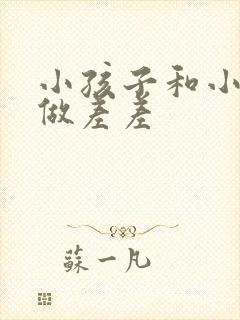 小孩子和小
做差差
蘇一凡